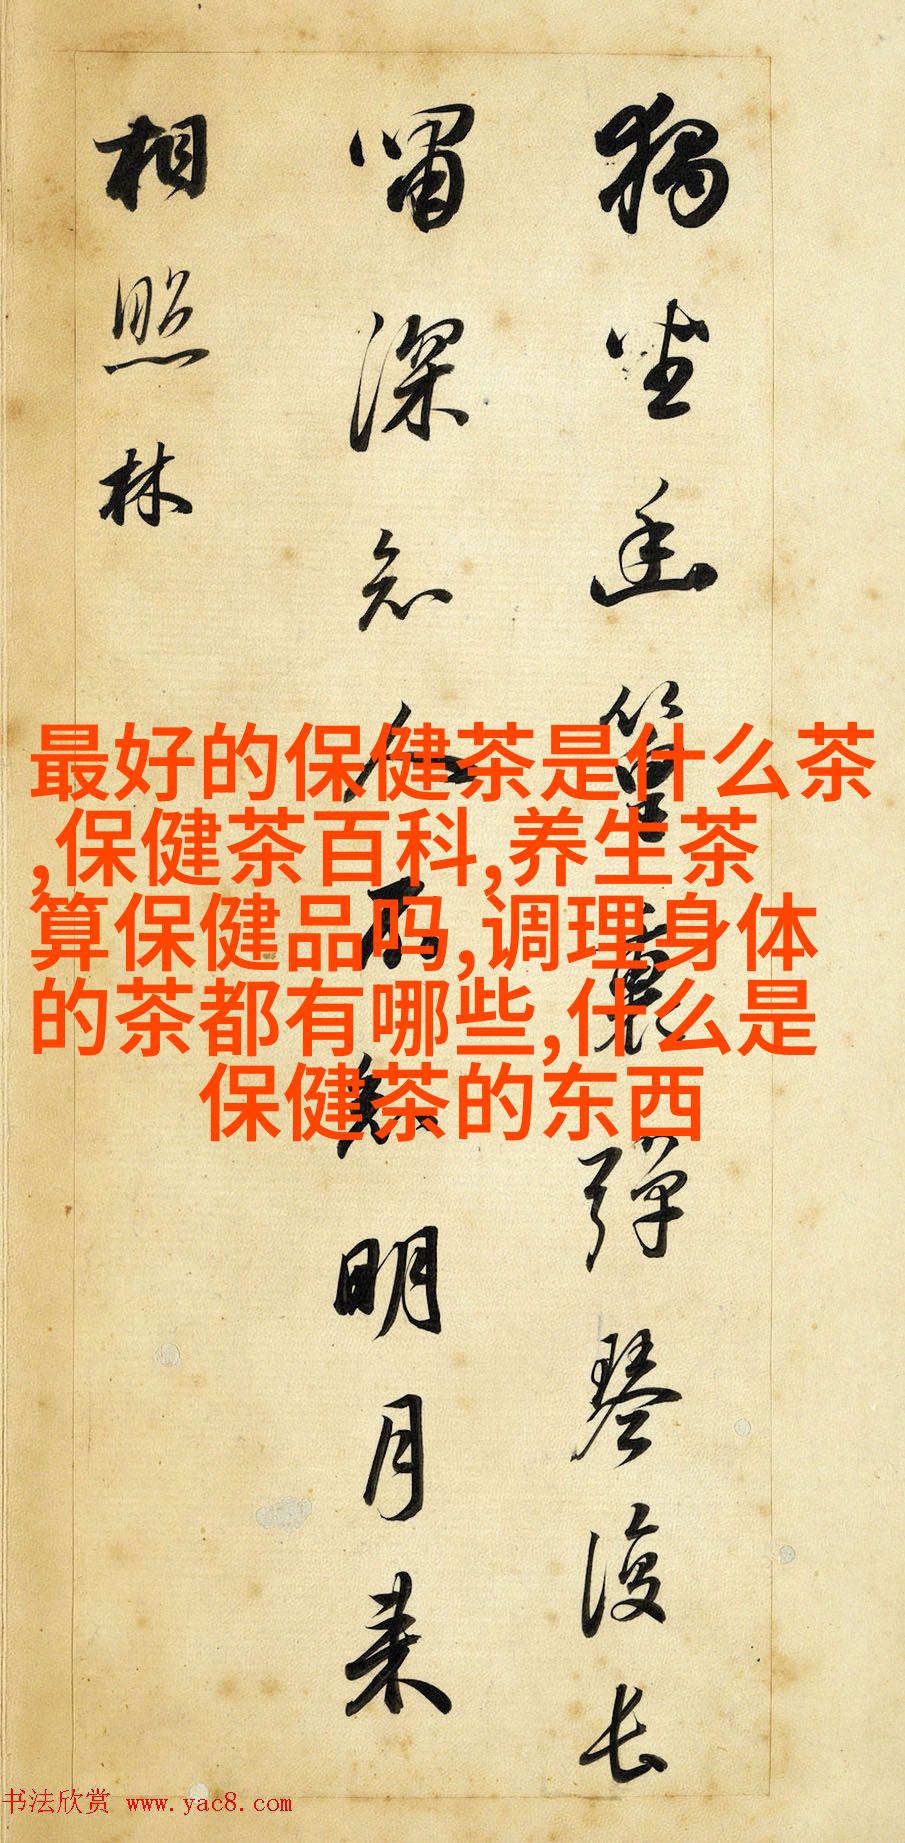 獨坐幽篁裏彈琴復長
嘯深人不明月来
相照林
最好的保健茶是什么茶
,保健茶百科,养生茶
算保健品吗,调理身体
的茶都有哪些,什么是
保健茶的东西
书法欣赏 www.yac8.com